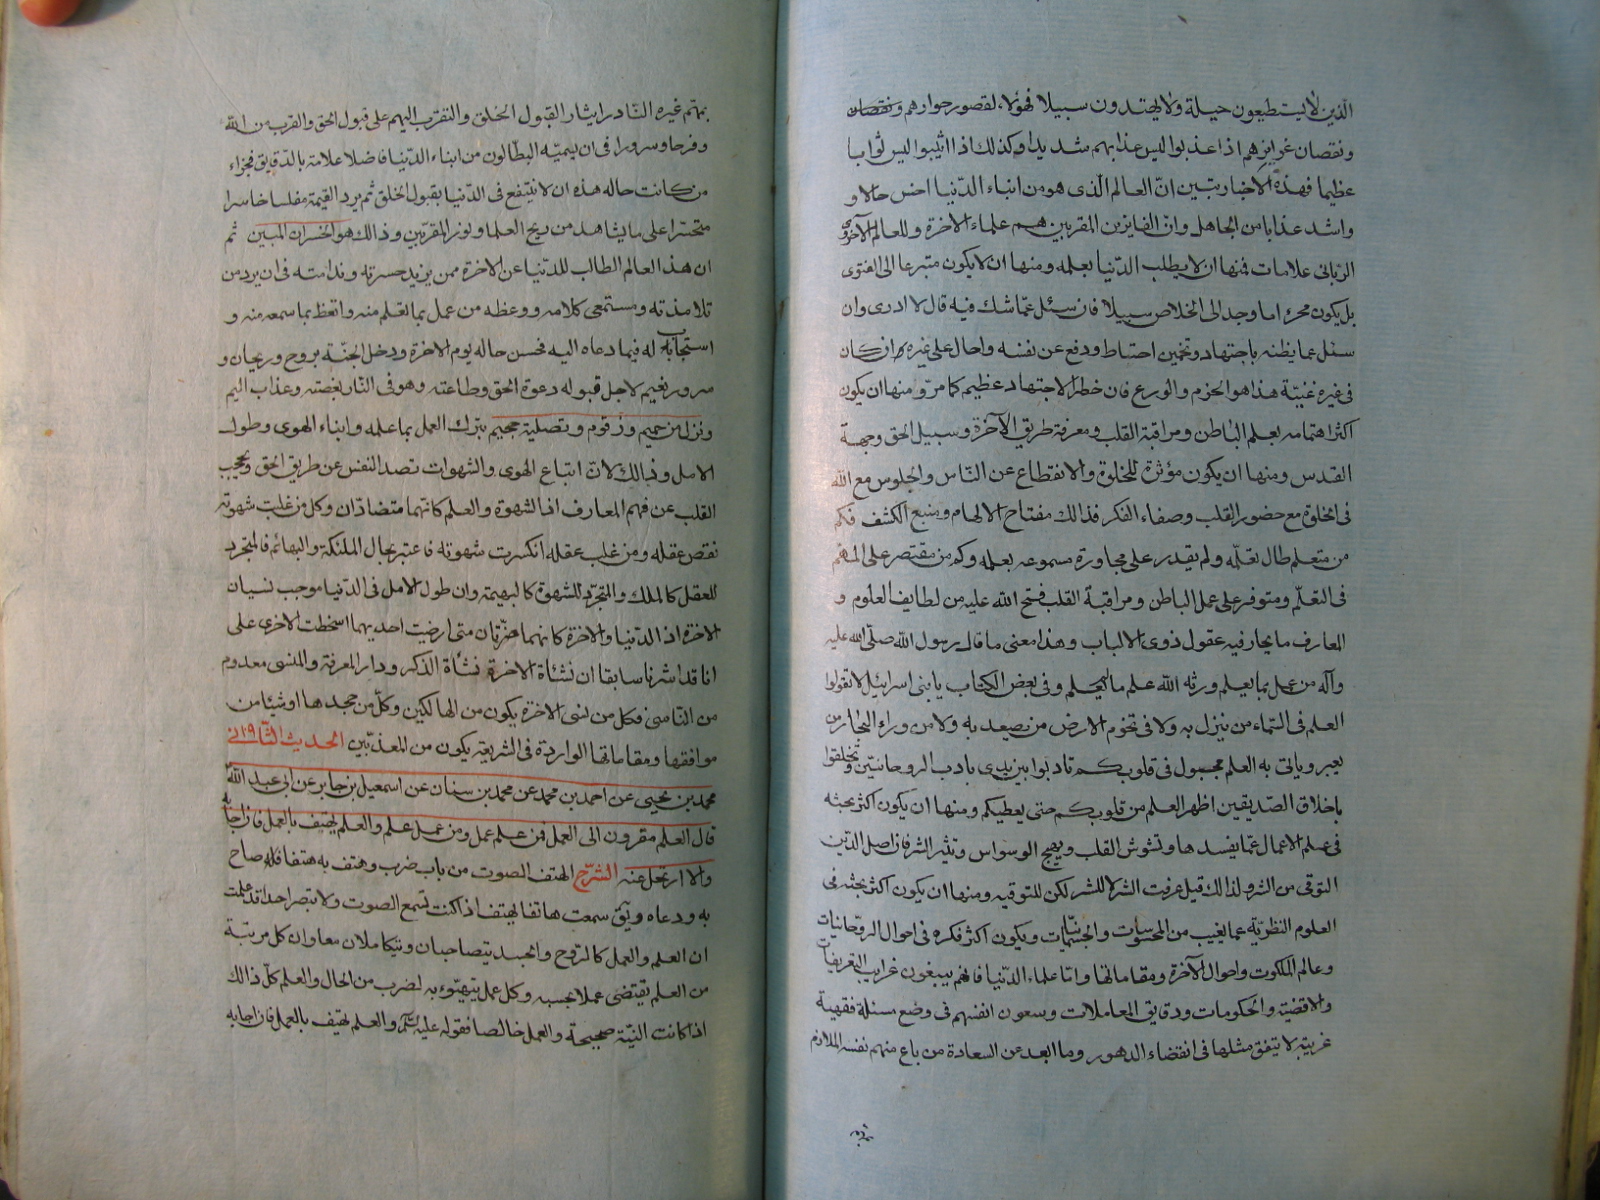 الذين لا يستطيعون حيلة ولا يهتدون سبيلا فهؤلاء لقصور جوارهم ونقصان
ونقصان غرايزهم اذا عذبوا ليس عذابهم شديدا وكذلك اذا اثيبوا ليس ثوابا
عظيما فهذه الاخبار تبين انّ العالم الّذى هو من ابناء الدّنيا اخس حالا و
واشد عذابا من الجاهل وانّ الفايزين المقربين هم علماء الاخرة وللعالم الآخروى
الربّانى علامات فمنها ان لا يطلب الدّنيا بعلمه ومنها ان لا يكون متبرعا الى الفتوى
بل يكون محرزا ما وجد الى الخلاص سبيلا فان سئل عمّا شك فيه قال لا ادرى وان
سئل عما يظنه باجتهاد وتخمين احتاط ودفع عن نفسه واحال على غيره ان كان
فى غيره غنيّة هذا هو الحزم والورع فان خطر الاجتهاد عظيم كما مرّ ومنها ان يكون
اكثر اهتمامه بعلم الباطن ومراقبة القلب ومعرفة طريق الآخرة وسبيل الحق وجهة
القدس ومنها ان يكون مؤثرة للخلوة والانقطاع عن النّاس والجلوس مع الله
فى الخلوة مع حضور القلب وصفاء الفكر فذالك مفتاح الالهام ومنبع الكشف فكم
من متعلم طال تعلّمه ولم يقدر على مجاوزة مسموعه بعلمه وكم من مقتصر على المهم
فى التعلّم ومتوفر على عمل الباطن ومراقبة القلب فتح الله عليه من لطايف العلوم و
المعارف ما يحار فيه عقول ذوى الالباب وهذا معنى ما قال رسول الله صلّى الله عليه
وآله من عمل بما يعلم ورثه الله علم ما لم يعلم وفى بعض الكتاب يا بنى اسرائيل لا تقولوا
العلم فى السّماء من ينزل به ولا فى تخوم الارض من يصعد به ولا من وراء البحار من
يعبر وياتى به العلم مجبول فى قلوبكم تادبوا بين يدى بادب الروحانيّين وتخلقوا
باخلاق الصّديقين اظهر العلم من قلوبكم حتى يعطيكم ومنها ان يكون اكثر بحثه
فى علم الاعمال عمّا يفسدها وتشوش القلب ويهيج الوسواس وتثير الشر فان اصل الدّين
التوقى من الشر ولذالك قيل عرفت الشر لا للشر لكن للتوقيه ومنها ان يكون اكثر بحثه فى
العلوم النظريّة عما يغيب من المحسوسات والجسمانيّات ويكون اكثر فكره فى احوال الروحانيات
وعالم الملكوت واحوال الآخرة ومقاماتها وامّا علماء الدّنيا فانهم يبيغون غرايب التعريفات
والاقضية والحكومات ودقايق المعاملات ويسعون انفسهم فى وضع مسئلة فقهية
غريبة لا يتفق مثلها فى انقضاء الدهور وما ابعد عن السعادة من باع منهم نفسه الملازم
بمهم غيره النّادر ايثار القبول الخلق والتقرّب اليهم على قبول الحق والقرب من الله
وفرحا وسرورا فى ان يسميّه البطّالون من ابناء الدّنيا فاضلا علامة بالدّقايق فجزاء
من كانت حاله هذه ان لا ينتفع فى الدّنيا بقبول الخلق ثم يرد القيمة مفلسا خاسرا
متحسّرا على ما يشاهد من ربح العلما وفوز المقربين وذالك هو الخسران المبين ثم
ان هذا العالم الطالب للدّنيا عن الاخرة ممن يزيد حسرته وندامته فى ان يرد من
تلامذته ومستمعى كلامه ووعظه من عمل بما تعلم منه واتعظ بما سمعه منه و
استجابة له فيما دعاه اليه فحسن حاله يوم الاخرة ودخل الجنّة بروح وريحان و
سرور نعيم لاجل قبوله دعوة الحق وطاعته وهو فى النّار بغصّته وعذاب اليم
ونزل من حميم وزقوم وتصلية جحيم بترك العمل بما علمه وابناء الهوى وطول
الامل وذالك لانّ اتباع الهوى والشهوات تصد النفس عن طريق الحق ويحجب
القلب عن فهم المعارف اذ الشهوة والعلم كانهما متضادّان وكل من غلبت شهوته
نقص عقله ومن غلب عقله انكسرت شهوته فاعتبر بحال الملئكة والبهائم فالمتجرد
للعقل كالملك والمتجرّد للشهوة كالبهيمة وان طول الامل فى الدّنيا موجب نسيان
الاخرة اذ الدّنيا والاخرة كانهما ضرّتان متى ارضيت احديهما اسخطت الاخرى على
انا قد اشرنا سابقا ان نشئاة الاخرة نشأة الذكر ودار المعرفة والمنسى معدوم
من النّاسى فكل من نسى الاخرة يكون من الهالكين وكلّ من جحدها او شيئا من
موافقها ومقاماتها الواردة فى الشريعة يكون من المعذّبين الحديث الثّانى
محمد بن يحيى عن احمد بن محمد عن محمد بن سنان عن اسمعيل بن جابر عن ابى عبد الله
قال العلم مقرون الى العمل فمن علم عمل ومن عمل علم والعلم يهتف بالعمل فان اجابه
والا ارتحل عنه الشرح الهتف الصوت من باب ضرب وهتف به هتفا قلة صاح
به ودعاه ويق سمعت هاتفا يهتف اذا كنت تسمع الصوت ولا تبصر احدا قد علمت
ان العلم والعمل كالروح والجسد يتصاحبان ويتكاملان معا وان كل مرتبة
من العلم يقتضى عملا بحسبه وكل عمل يتهيّوء به لضرب من الحال والعلم كلّ ذالك
اذا كانت النيّة صحيحة والعمل خالصا فقوله عليه السلام والعلم يهتف بالعمل فان اجابه